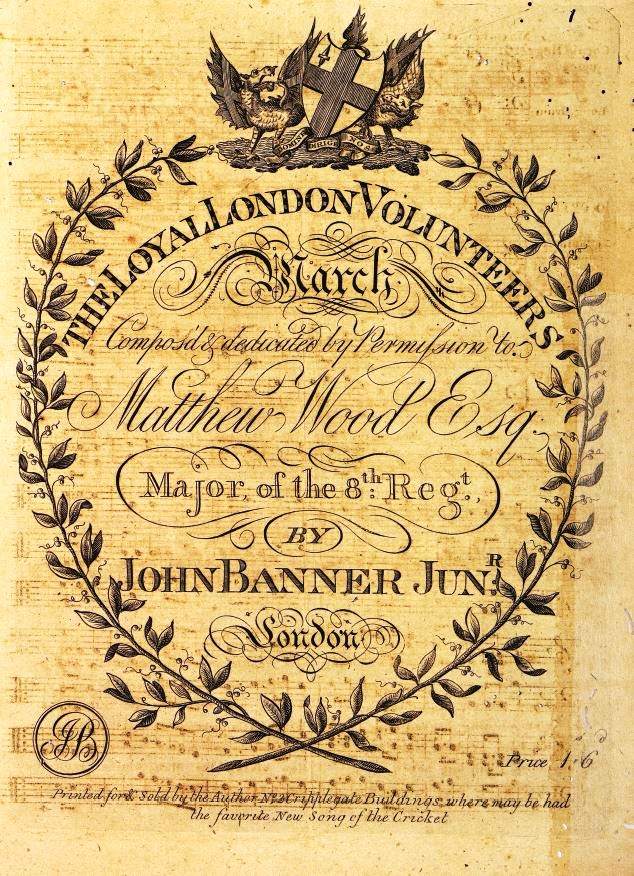 1
DOMINE DIRIGE NOS
THE LOYAL LONDON VOLUNTEERS
March
Compos'd & dedicated by Permission to
Matthew Wood Esq.
Major, of the 8th: Regt.,
BY
JOHN BANNER JUNR.
London
JB
Price 1.6
Printed for & Sold by the Author No. 2 Cripplegate Buildings, where may be had
the favorite New Song of the Cricket